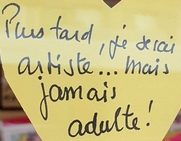 Plus tard, je serai
artiste... mais
jamais
adulte!